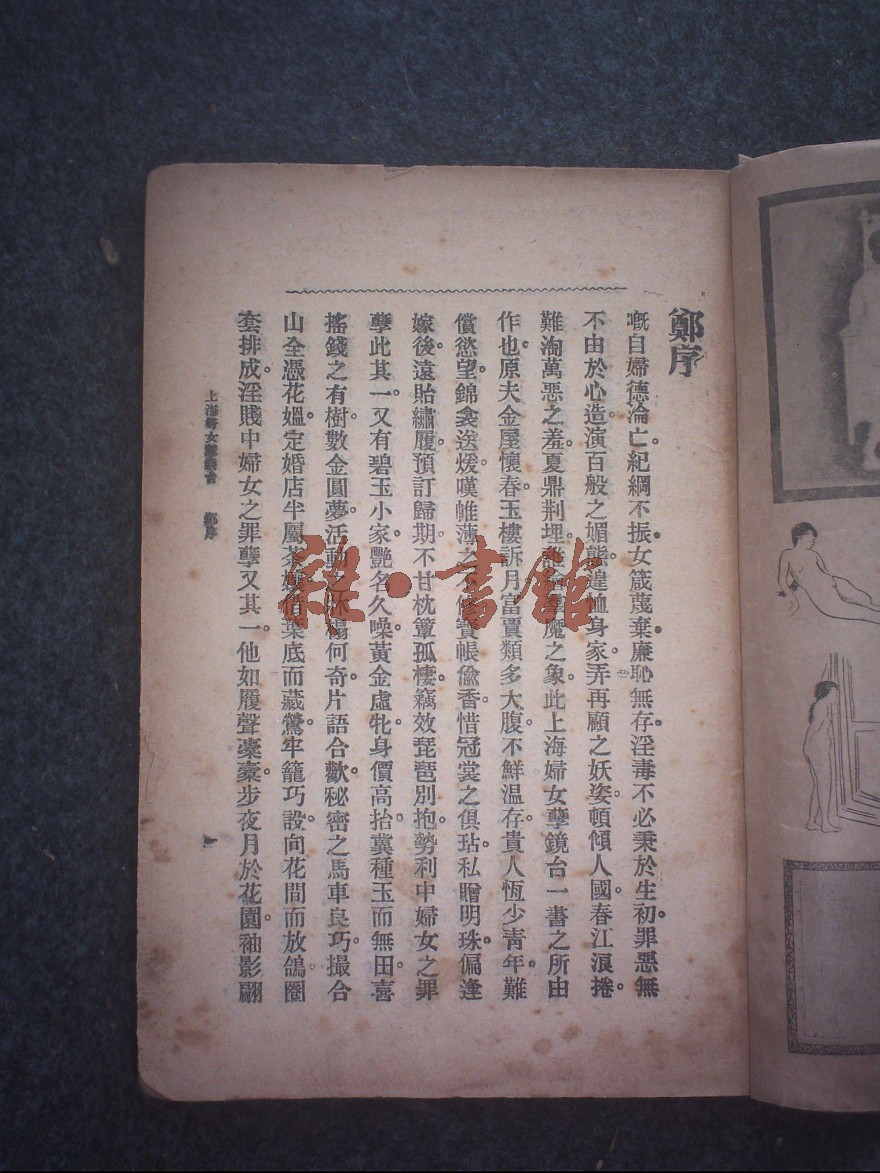 鄭序
嘅自婦德淪亡。紀綱不振。女箴蔑棄。廉恥無存。淫毒不必秉於生初。罪惡無
不由於心造。演百般之媚態。遑恤身家。弄再顧之妖姿。頓傾人國。春江浪捲。
難淘萬惡之羞。夏鼎荆埋。孽魔之象。此上海婦女孽鏡台一書之所由
作也。原夫金屋懷春。玉樓訴月。富賈類多大腹。不鮮温存。貴人恆少靑年。難
償慾望。錦衾送煖。嘆帷薄之不修。寶帳偸香。惜冠裳之俱玷。私贈明珠。偏逢
嫁後。遠貽繡履。預訂歸期。不甘枕簟孤棲。竊效琵琶別抱。勢利中婦女之罪
孽此其一。又有碧玉小家。艷名久噪。黃金虛牝。身價高抬。冀種玉而無田。喜
搖錢之有樹。數金圓夢。活動之牀榻何奇。片語合歡。秘密之馬車良巧。撮合
山全憑花媼。定婚店半屬茶。借葉底而藏鶯。牢籠巧設。向花間而放鴿。圈
套排成。淫賤中婦女之罪孽又其一。他如履聲橐橐。步夜月於花園。袖影翩
上海婦女孽鏡台 鄭序
一
雜·書館